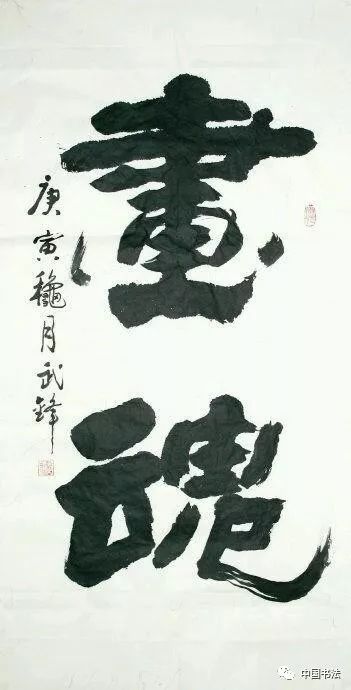 畫魂
庚寅穐月武鋒
中国书法